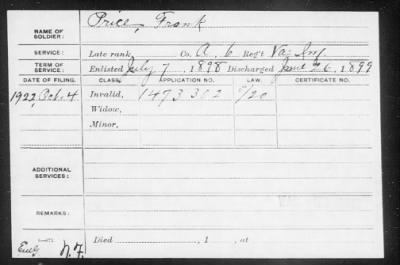 NAME OF SOLDIER: Price, Frank
SERVICE: Late rank, Co. A. 6 Reg't Va. Inf.
TERM OF SERVICE: Enlisted July 7, 1898 Discharged June 26, 1899
DATE OF FILING. CLASS. APPLICATION NO. LAW. CERTIFICATE NO.
1922, Oct. 4 Invalid, 1473302
Widow,
Minor,
ADDITIONAL SERVICES:
REMARKS:
Died , 1 , at